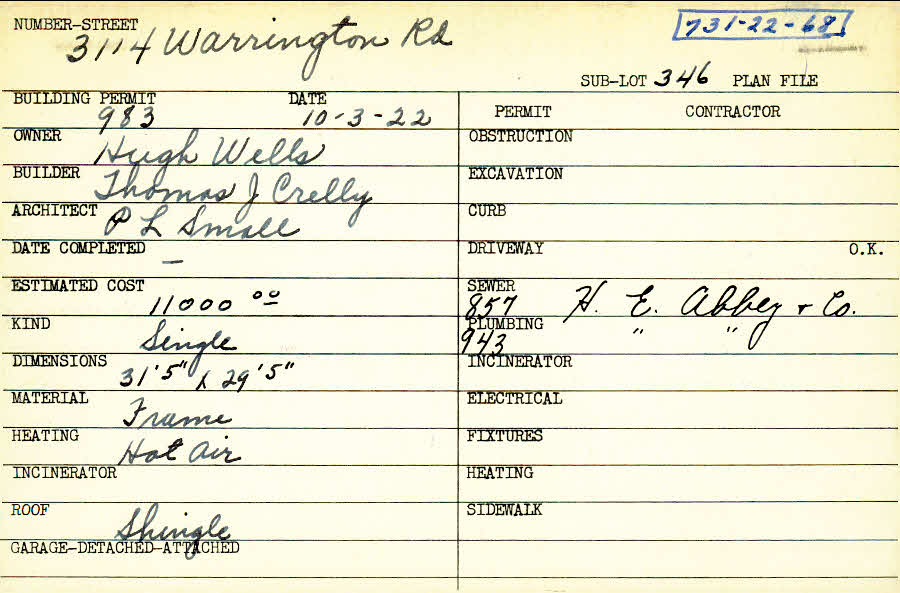 NUMBER-STREET
3114 Warrington Rd
731-22-68
SUB-LOT 346 PLAN FILE
BUILDING PERMIT DATE
983 10-3-22
OWNER
Hugh Wells
BUILDER
Thomas J Crelly
ARCHITECT
P L Small
DATE COMPLETED
—
ESTIMATED COST
11000 00
KIND
Single
DIMENSIONS
31'5" x 29'5"
MATERIAL
Frame
HEATING
Hot Air
INCINERATOR
ROOF
Shingle
GARAGE-DETACHED-ATTACHED
PERMIT CONTRACTOR
OBSTRUCTION
EXCAVATION
CURB
DRIVEWAY O.K.
SEWER
857 H. E. Abbey & Co.
PLUMBING
943 " "
INCINERATOR
ELECTRICAL
FIXTURES
HEATING
SIDEWALK